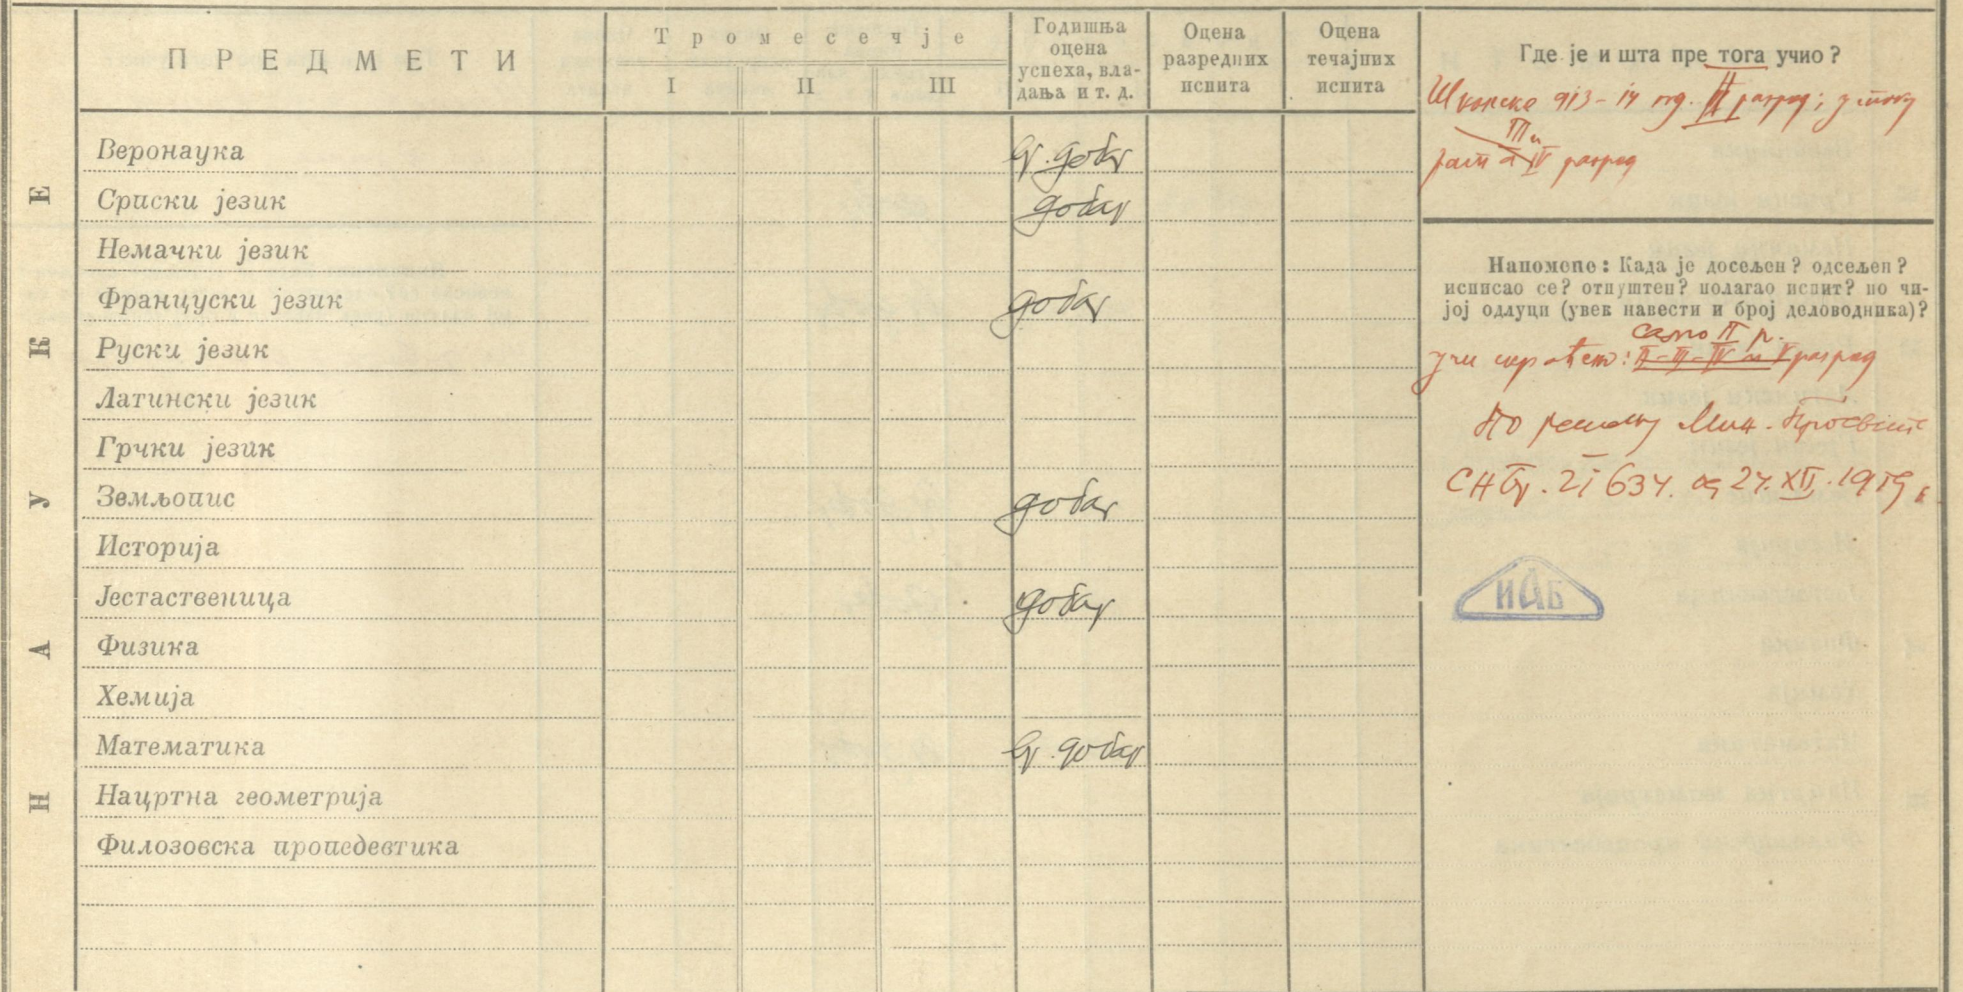 ПРЕДМЕТИ
Тромесечје
I II III
Годишња
оцена
успеха, вла-
дања и т. д.
Оцена
разредних
испита
Оцена
течајних
испита
НАУКЕ
Веронаука вр. добар
Српски језик добар
Немачки језик
Француски језик добар
Руски језик
Латински језик
Грчки језик
Земљопис добар
Историја
Јестаственица добар
Физика
Хемија
Математика вр. добар
Нацртна геометрија
Филозовска пропедевтика
Где је и шта пре тога учио?
Школске 913-14 год. II разред; у току
III и
рата и IV разред
Напомене: Када је досељен? одсељен?
исписао се? отпуштен? полагао испит? по чи-
јој одлуци (увек навести и број деловодника)?
само II р.
учи скраћено: II-III-IV и V разред
по решењу Мин. Просвете
СНбр. 21634. од 24. XII. 1919 г.
ИАБ